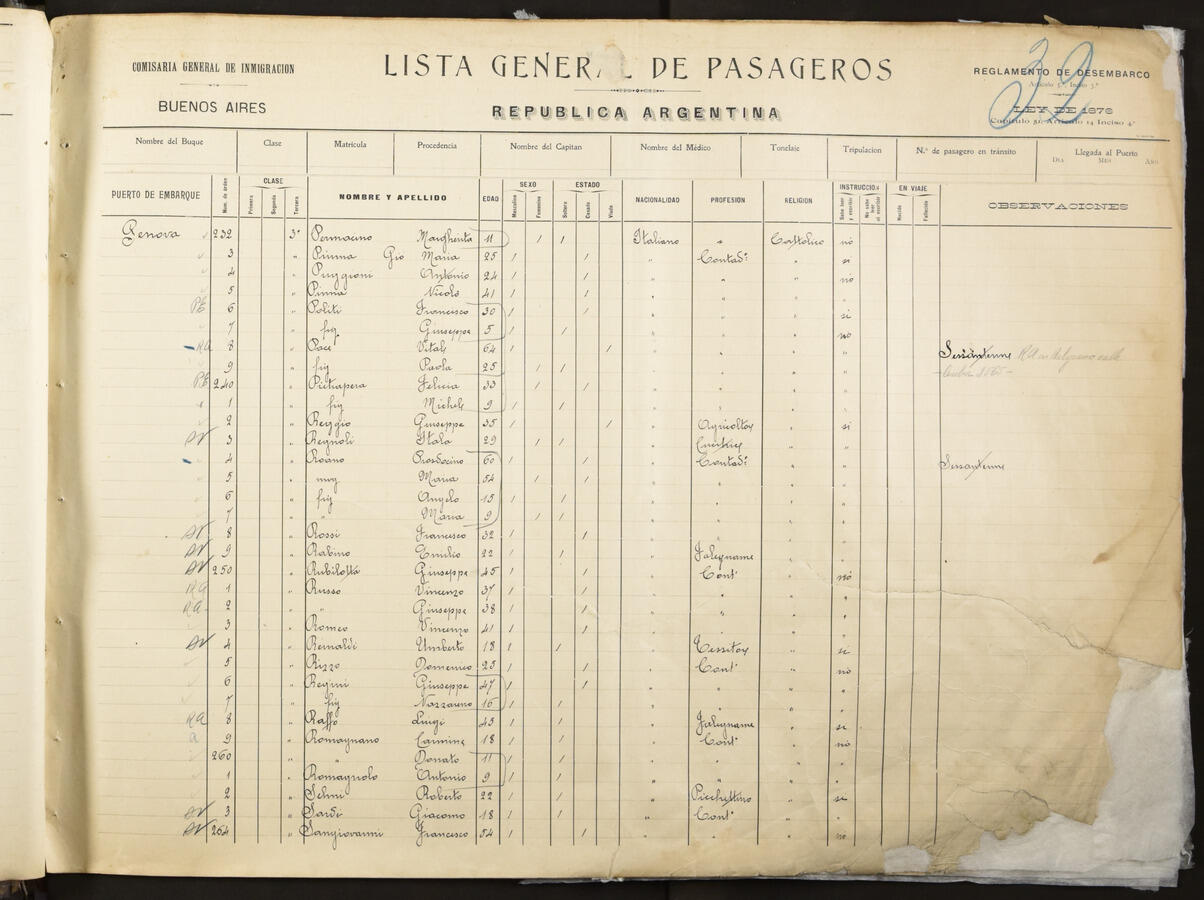 COMISARIA GENERAL DE INMIGRACION
BUENOS AIRES
LISTA GENERAL DE PASAGEROS
REPUBLICA ARGENTINA
REGLAMENTO DE DESEMBARCO
Artículo 5º, Inciso 3º
LEY DE 1876
Capítulo 51, Artículo 14 Inciso 4º
32
Nombre del Buque Clase Matrícula Procedencia Nombre del Capitan Nombre del Médico Tonelaje Tripulacion N.º de pasagero en tránsito Llegada al Puerto
Dia Mes Año
PUERTO DE EMBARQUE Núm. de órden CLASE Primera Segunda Tercera NOMBRE Y APELLIDO EDAD SEXO Masculino Femenino ESTADO Soltero Casado Viudo NACIONALIDAD PROFESIÓN RELIGION INSTRUCCION Sabe leer y escribir No sabe leer ni escribir EN VIAJE Nacido Fallecido OBSERVACIONES
Genova 232 3ª Permacino Margherita 11 / / Italiano " Cattolico no
3 " Pinna Gio Maria 25 / / " Contad: " si
4 " Puggioni Antonio 24 / / " " " no
5 " Pinna Nicolo 41 / / " " " "
PE 6 " Politi Francesco 30 / / " " " si
7 " fig Giuseppe 5 / / " " " no
RA 8 " Pace Vitale 64 / / " " " " Sessantenne RA
9 " fig Paola 25 / / " " " "
PE 240 " Pietrapera Felicia 33 / / " " " "
1 " fig Michele 9 / / " " " "
2 " Reggio Giuseppe 35 / / " Agricoltor " si
3 " Regnoli Itala 29 / / " Cucitrice " "
4 " Roano Prosdocimo 60 / / " Contad: " " Sessantenne
5 " mog Maria 54 / / " " " "
6 " fig Angelo 15 / / " " " "
7 " " Maria 9 / / " " " "
8 " Rossi Francesco 32 / / " " " "
9 " Rabino Emilio 22 / / " Falegname " "
250 " Rubilotta Giuseppe 45 / / " Cont " no
RA 1 " Russo Vincenzo 37 / / " " " "
RA 2 " " Giuseppe 38 / / " " " "
3 " Romeo Vincenzo 41 / / " " " "
4 " Rinaldi Umberto 18 / / " Tessitor " si
5 " Rizzo Domenico 25 / / " Cont " no
6 " Regini Giuseppe 47 / / " " " "
7 " fig Nazzareno 16 / / " " " "
RA 8 " Raffo Luigi 43 / / " Falegname " si
A 9 " Romagnano Carmine 18 / / " Cont " no
260 " " Donato 11 / / " " " "
1 " Romagnolo Antonio 9 / / " " " "
2 " Selmi Roberto 22 / / " Picchettino " si
3 " Sardi Giacomo 18 / / " Cont " "
264 " Sangiovanni Francesco 54 / / " " " no